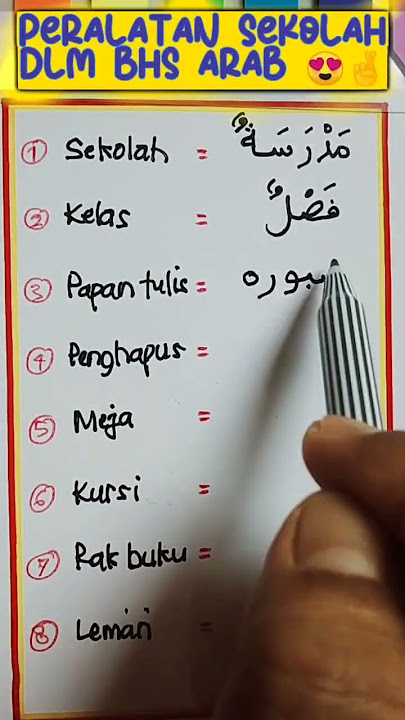 PERALATAN SEKOLAH
DLM BHS ARAB 😍✌
① Sekolah = مَدْرَسَةٌ
② Kelas = فَصْلٌ
③ Papan tulis = سبوره
④ Penghapus =
⑤ Meja =
⑥ Kursi =
⑦ Rak buku =
⑧ Lemari =